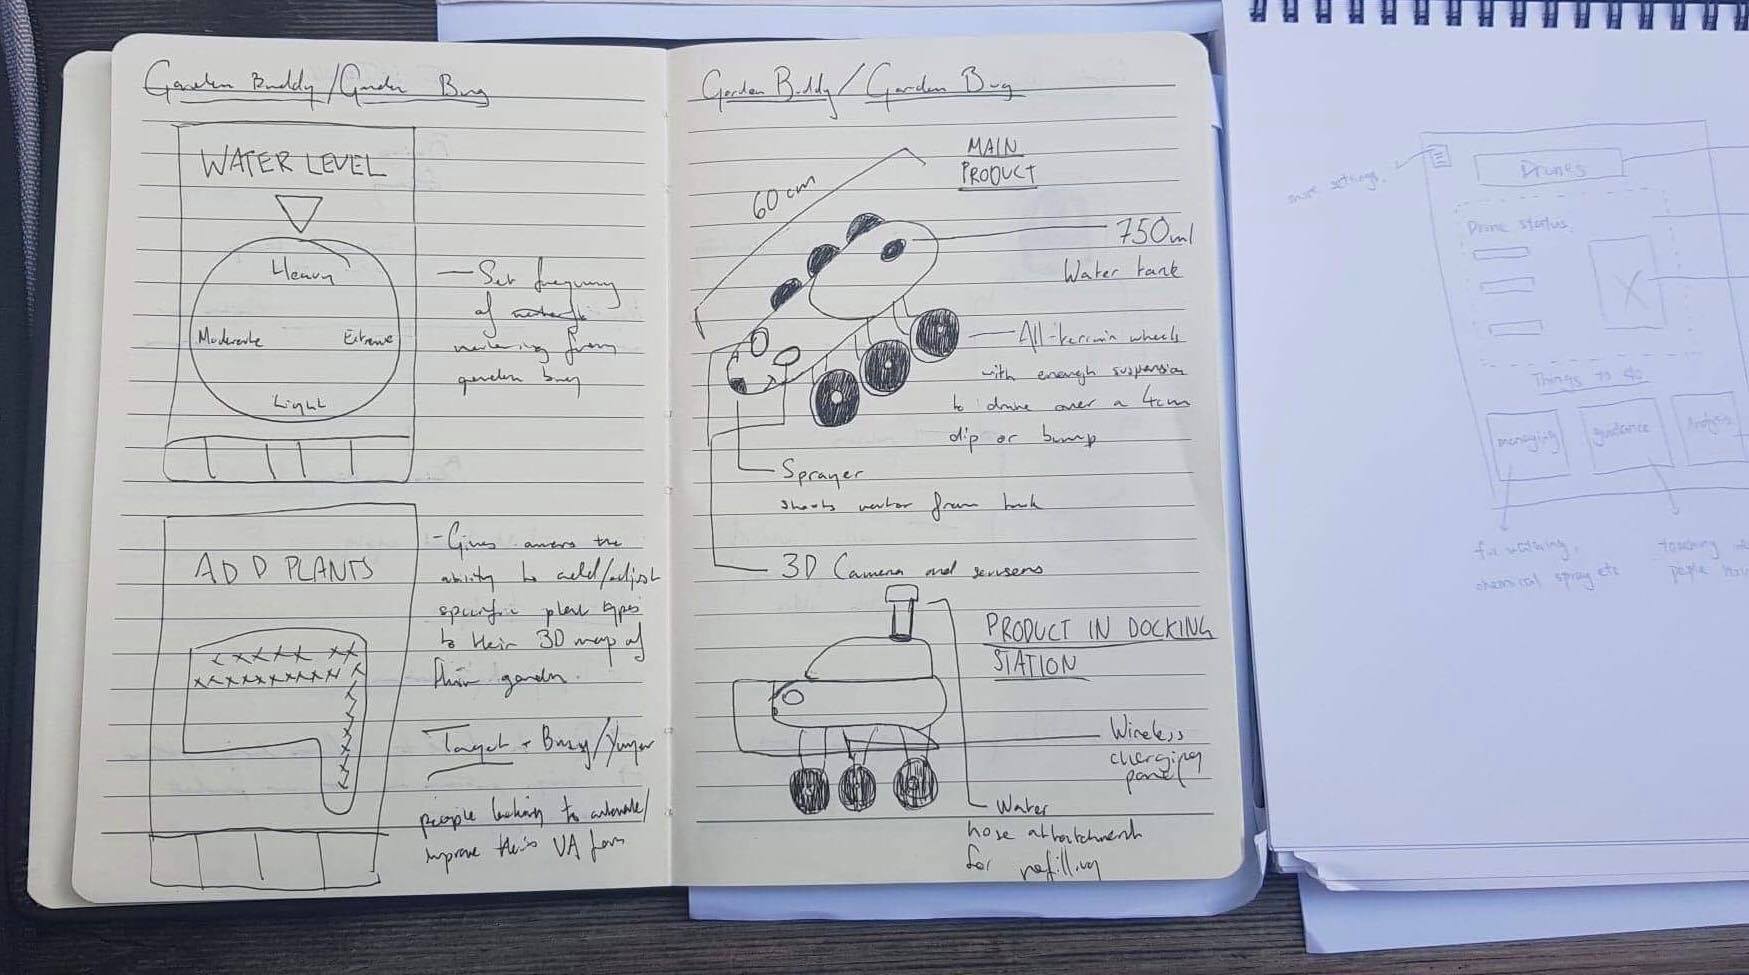 Garden Buddy / Garden Bug
WATER LEVEL
Heavy
Moderate
Extreme
Light
- Set frequency
of
watering from
garden bug
ADD PLANTS
- Gives users the
ability to add/adjust
specific plant types
to their 3D map of
their garden.
Target - Busy/Younger
people looking to automate/
improve their UA farm
Garden Buddy / Garden Bug
MAIN
PRODUCT
60cm
750ml
Water tank
All-terrain wheels
with enough suspension
to drive over a 4cm
dip or bump
Sprayer
shoots water from tank
3D Camera and sensors
PRODUCT IN DOCKING
STATION
Wireless
charging
panel
Water
hose attatchment
for refilling
more settings.
Drones
Drone status
X
Things to do
managing
guidance
Analysis
for watering,
chemical spray etc
teaching
people how